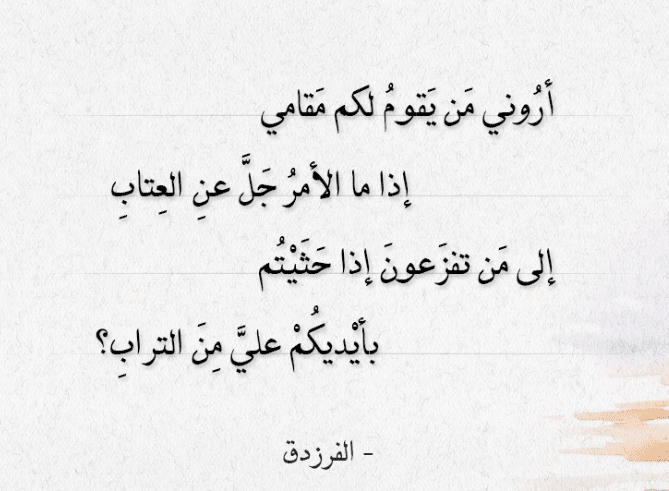 أرُوني مَن يَقومُ لكم مَقامي
إذا ما الأمرُ جَلَّ عنِ العِتابِ
إلى مَن تفزَعونَ إذا حَثَيْتُم
بأيْديكُمْ عليَّ مِنَ الترابِ؟
- الفرزدق